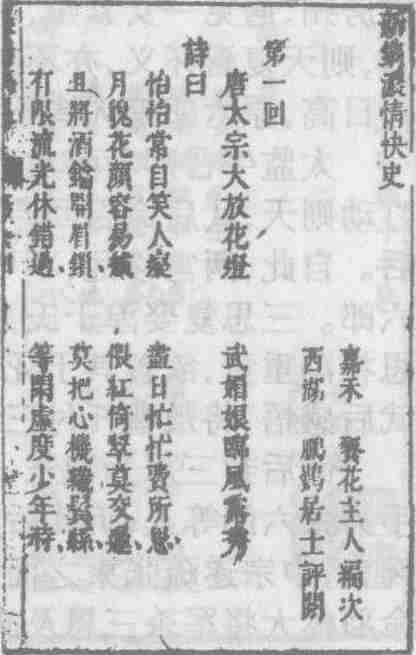 新鐫濃情快史
嘉禾 餐花主人編次
西湖 鵬鷃居士評閱
第一回
唐太宗大放花燈 武媚娘曬風露秀
詩曰
怡怡常自笑人癡 盡日忙忙費所思
月貌花顏容易 偎紅倚翠莫交遲
且將酒鑰開眉鎖 莫把心機鬢絲
有限流光休錯過 等閒虛度少年時